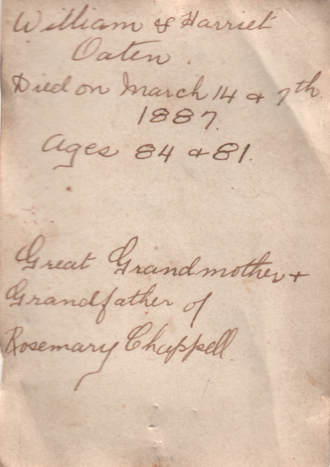 William & Harriet
Oaten.
Died on March 14 & 7th
1887.
Ages 84 & 81.
Great Grandmother +
Grandfather of
Rosemary Chappell.